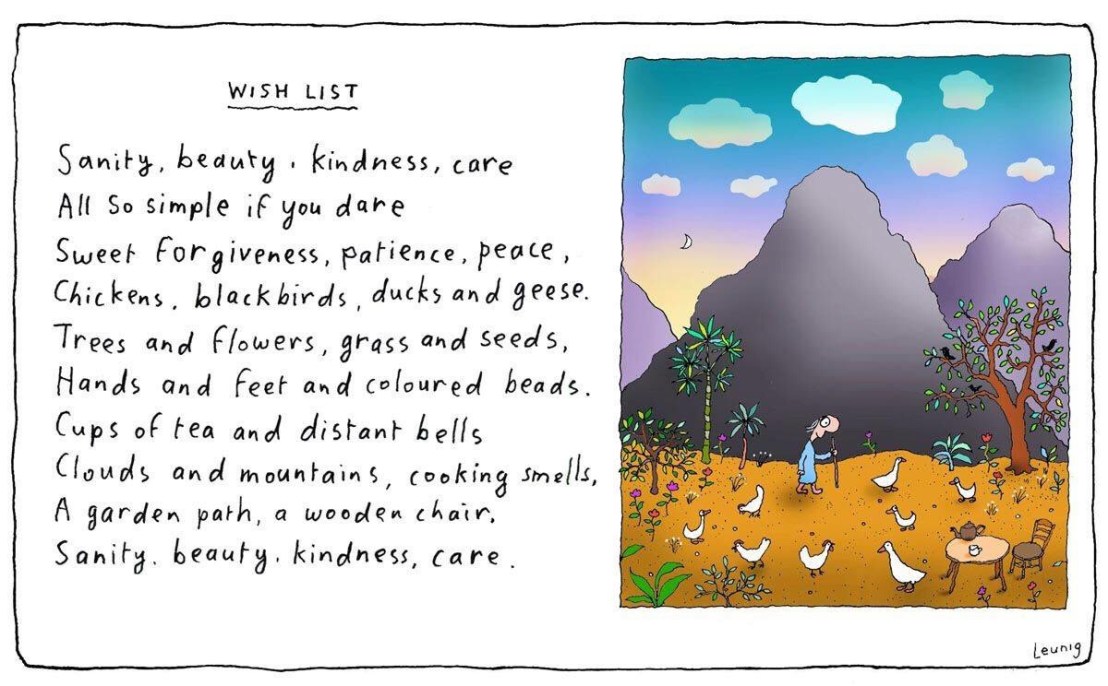 WISH LIST
Sanity, beauty, kindness, care
All so simple if you dare
Sweet forgiveness, patience, peace,
Chickens, blackbirds, ducks and geese.
Trees and flowers, grass and seeds,
Hands and feet and coloured beads.
Cups of tea and distant bells
Clouds and mountains, cooking smells,
A garden path, a wooden chair,
Sanity. beauty. kindness, care.
Leunig